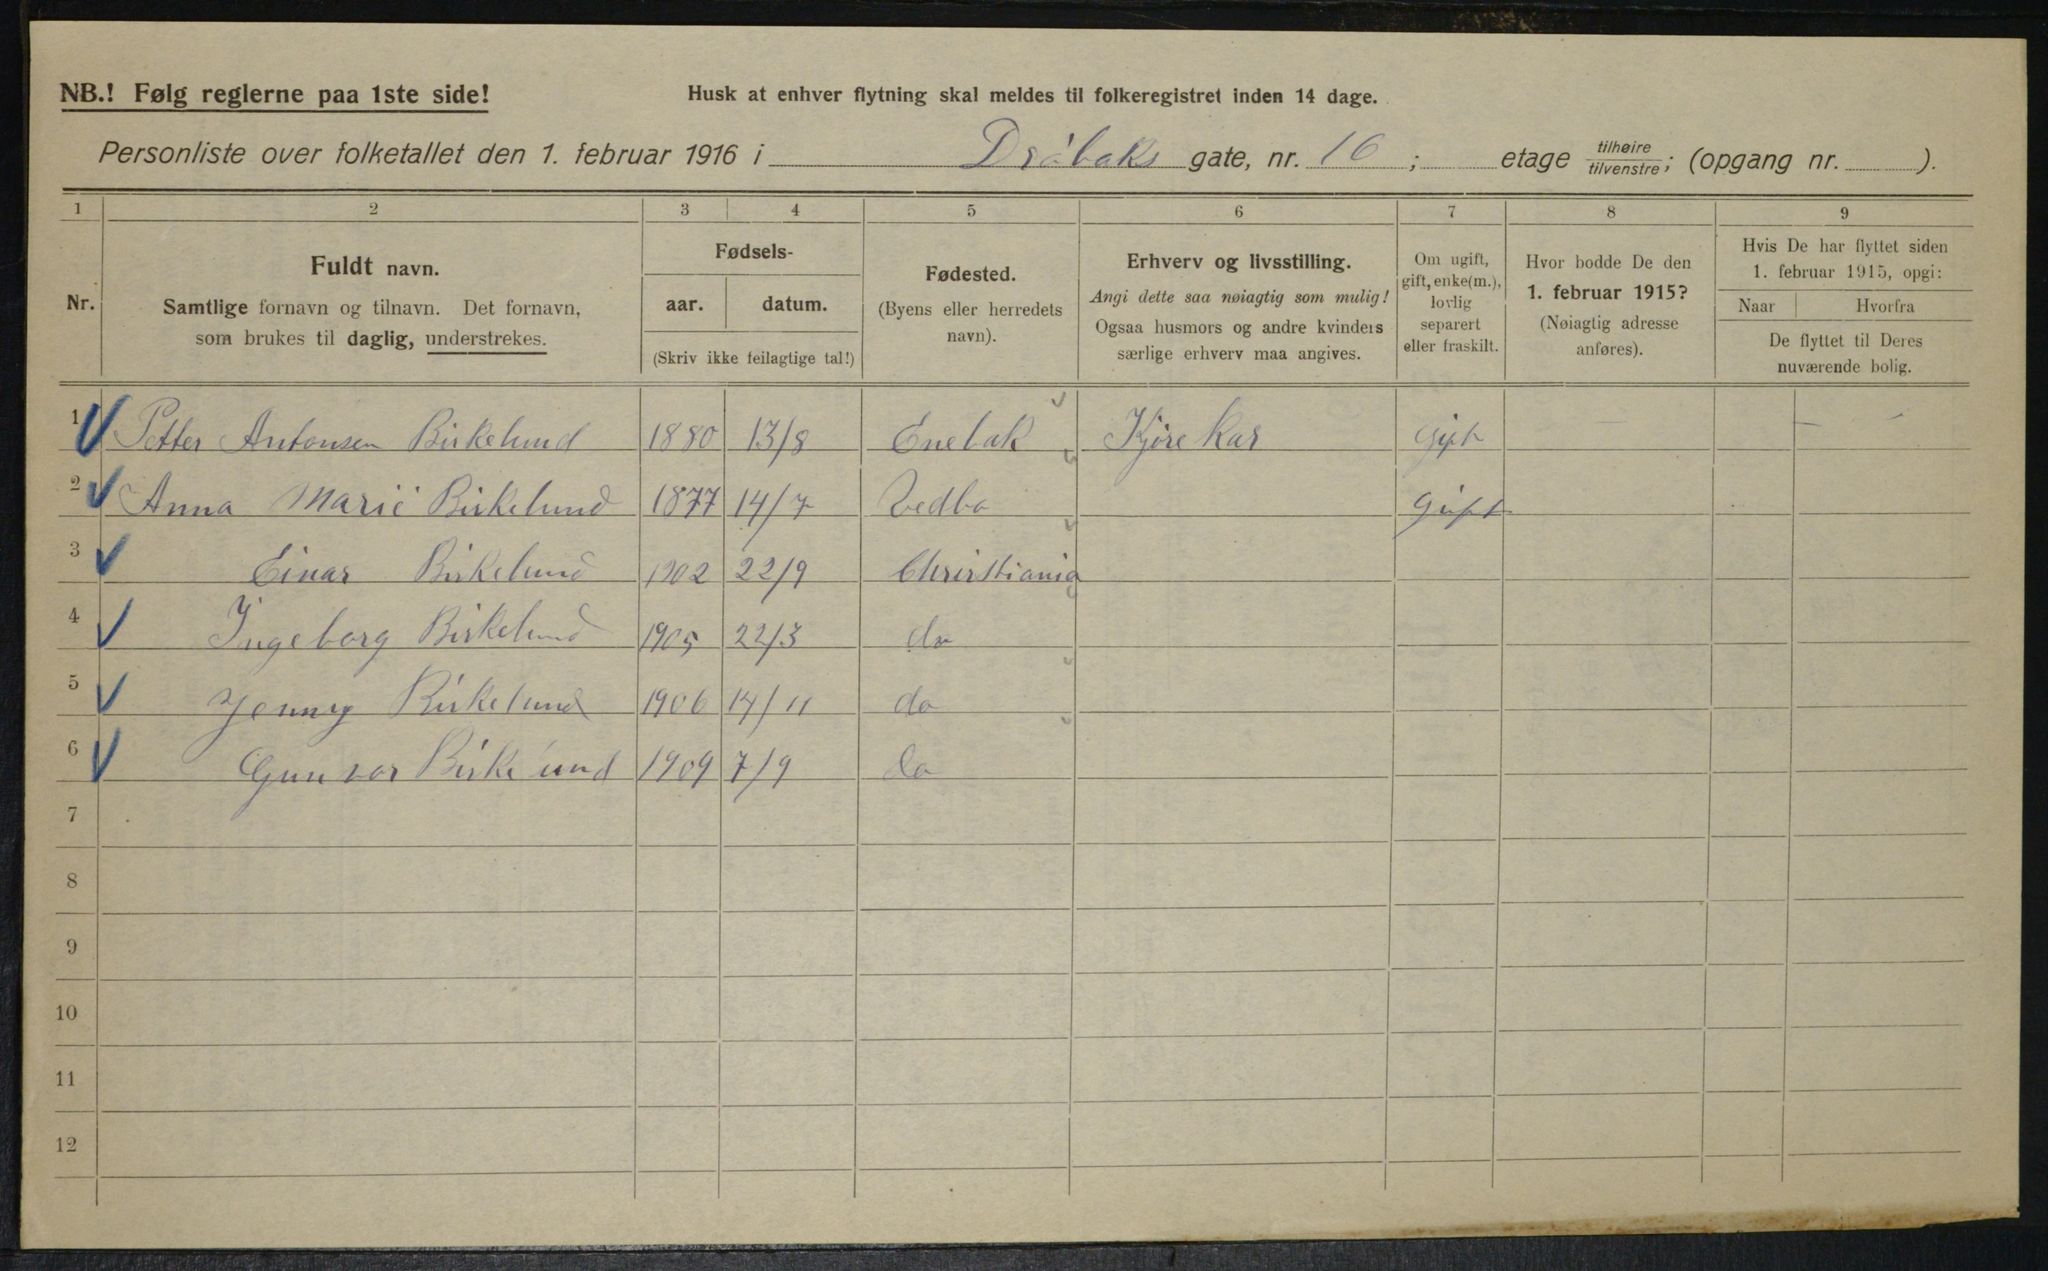 NB.! Følg reglerne paa 1ste side!
Husk at enhver flytning skal meldes til folkeregistret inden 14 dage.
Personliste over folketallet den 1. februar 1916 i Drøbaks gate, nr. 16; etage tilhøire/tilvenstre; (opgang nr. ).
1 2 3 4 5 6 7 8 9
Nr.
Fuldt navn.
Samtlige fornavn og tilnavn. Det fornavn,
som brukes til daglig, understrekes.
Fødsels-
aar. datum.
(Skriv ikke feilagtige tal!)
Fødested.
(Byens eller herredets
navn).
Erhverv og livsstilling.
Angi dette saa nøiagtig som mulig!
Ogsaa husmors og andre kvinders
særlige erhverv maa angives.
Om ugift,
gift, enke(m.),
lovlig
separert
eller fraskilt.
Hvor bodde De den
1. februar 1915?
(Nøiagtig adresse
anføres).
Hvis De har flyttet siden
1. februar 1915, opgi:
Naar Hvorfra
De flyttet til Deres
nuværende bolig.
1 Petter Antonsen Birkelund 1880 13/8 Enebak Kjørekar gift — — —
2 Anna Marie Birkelund 1877 14/7 Vedbo gift
3 Einar Birkelund 1902 22/9 Christiania
4 Ingeborg Birkelund 1905 22/3 do
5 Jenny Birkelund 1906 14/11 do
6 Gunvor Birkelund 1909 7/9 do
7
8
9
10
11
12